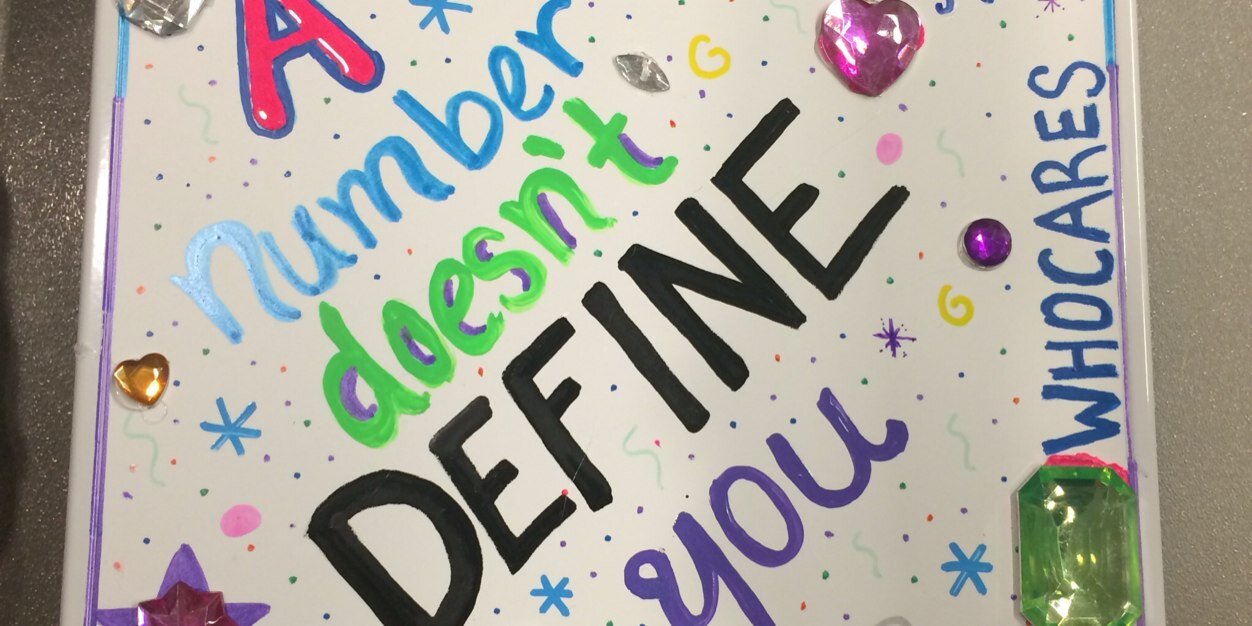 A
number
doesn't
DEFINE
you
WHOCARES